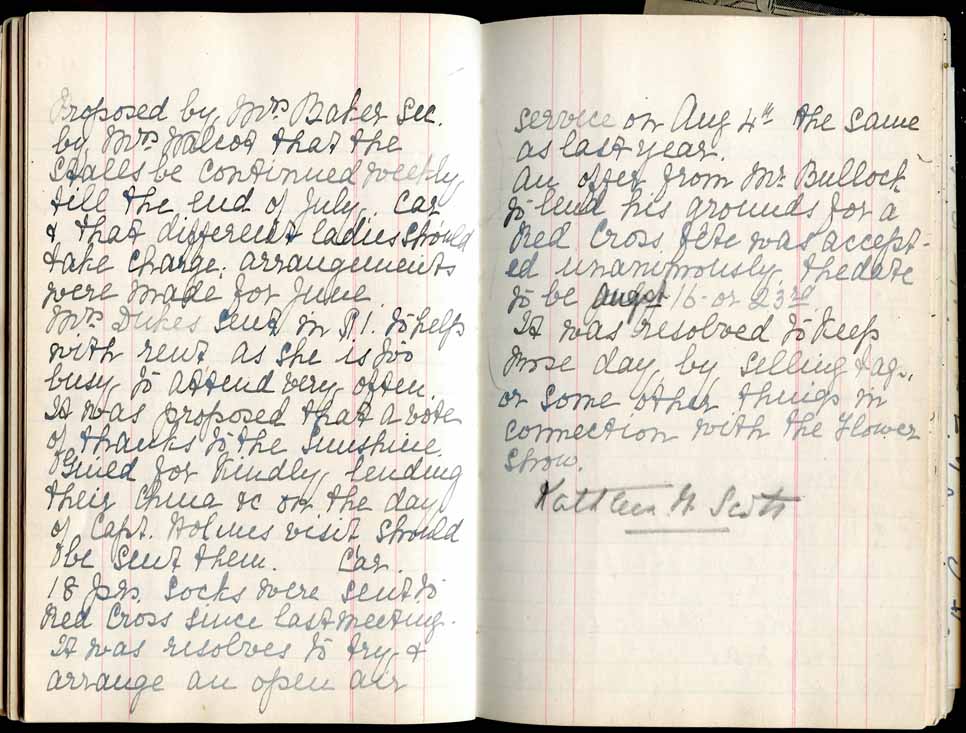 Proposed by Mrs. Baker Sec.
by Mrs Walcot that the
Stalls be continued weekly
till the end of July. Car
& that different ladies should
take charge. arrangements
were made for June.
Mrs Dukes sent in $1. to help
with rent as she is too
busy to attend very often.
It was proposed that a vote
of thanks to the Sunshine
Guied for Kindly lending
their China &c on the day
of Capt. Holmes visit should
be sent them. Car.
18 prs. socks were sent to
Red Cross since last meeting.
It was resolves to try &
arrange an open air
service on Aug 4th the same
as last year.
An offer from Mr. Bullock
to lend his grounds for a
Red Cross fête was accept-
ed unanimously. the date
to be August 16 - or 23rd
It was resolved to Keep
rose day by selling tags,
or some other things in
connection with the Flower
Show.
Kathleen W. Scott